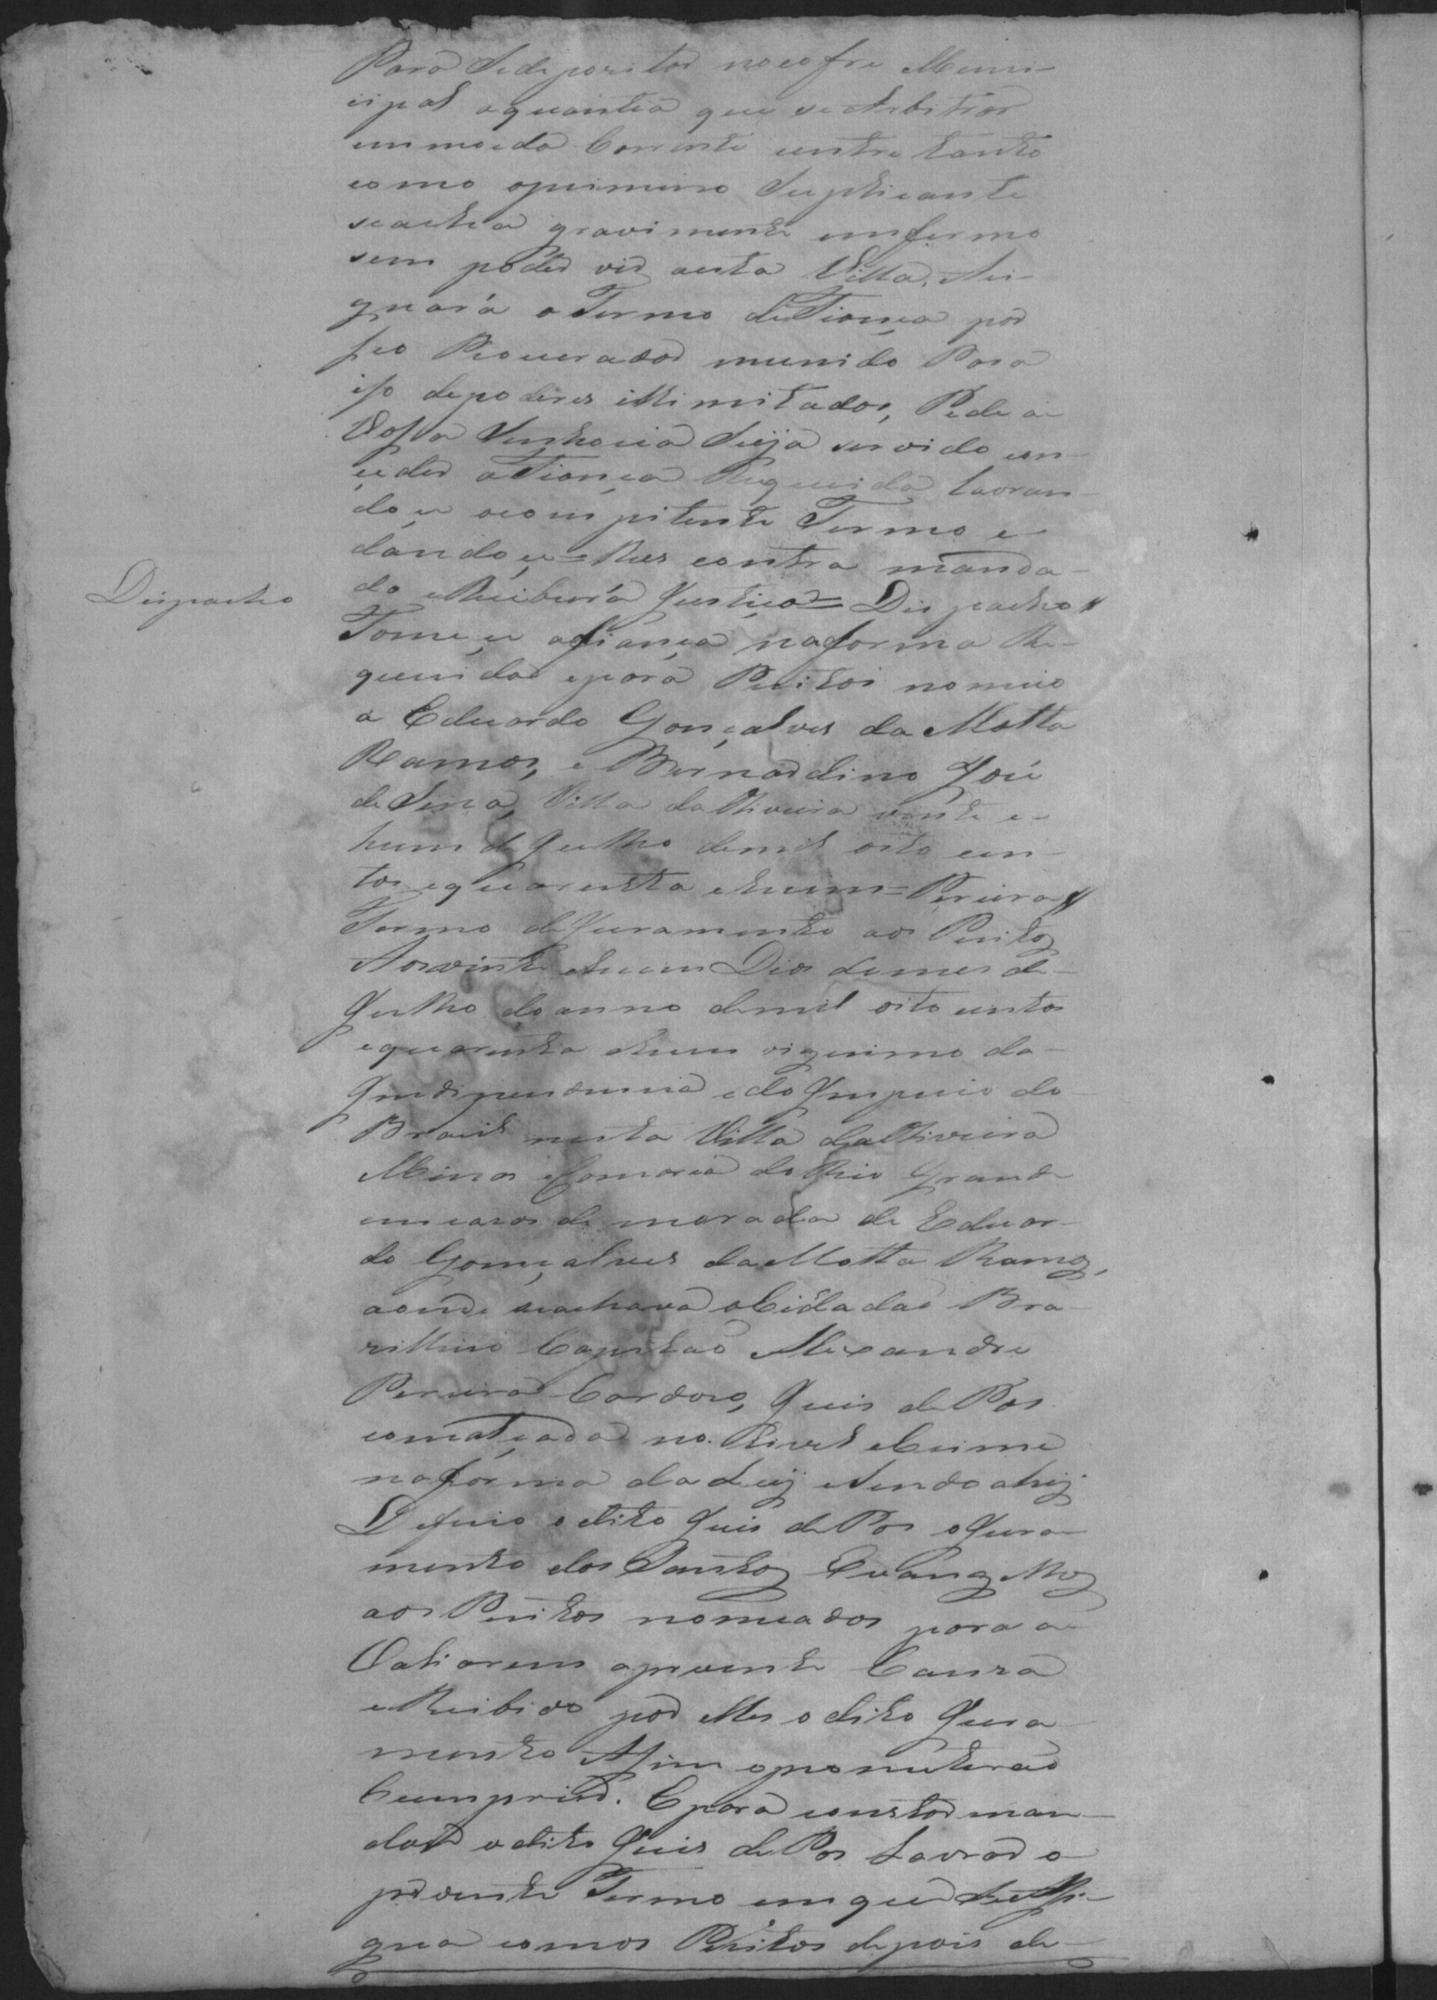 Para Sedepozitar nocofre Muni-
cipal aquantia que se Arbitrar
em moeda Corrente entre tanto
como oprimeiro Suplicante
seacha gravimente emfermo
sem poder vir aesta Villa, Asi-
gnará o Termo deFiança por
seo Procurador munido Para
iso depoderes illimitados, Pede a
Vossa Senhoria Seija servido con-
ceder aFiança Requerida lavran-
doce ocompitente Termo e
dandoce=lhes contra manda-
do eReceberá Justiça= Dispacho //
Dispacho
Tomece afiança naforma Re-
querida epara Peritos nomeio
a Eduardo Gonçalves da Motta
Ramos, e Bernardino José
de Sena, Villa da Oliveira vinte e
hum de Julho demil oito cen-
tos equarenta ehum= Pereira //
Termo deJuramento aos Peritos
Aosvinte ehum Dias domes de
Julho doanno demil oito centos
equarenta ehum vigesimo da
Independencia edo Imperio do
Brasil nesta Villa daOliveira
Minas eComarca do Rio Grande
emcazas de morada de Eduar-
do Gonçalves da Motta Ramos,
aonde seachava oCidadaõ Bra-
zilleiro Capitaõ Alexandre
Pereira Cardozo, Juis de Pas
comalçada no Civel eCrime
naforma da Leij eSendo ahij
Deferio odito Juis de Pas oJura-
mento dos Santos Evangelhos
aos Peritos nomeados para a-
Valiarem aprezente Cauza
eRecibido por elles o dito Jura-
mento Asim oprometeraõ
Cumprir. Epara constar man-
dou odito Juis de Pas Lavrar o
prezente Termo emque seAssi-
gna comos Peritos depois de